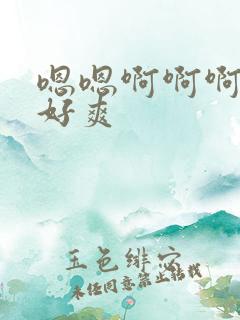 嗯嗯啊啊啊
好爽
玉色绯穴
未经同意禁止转载